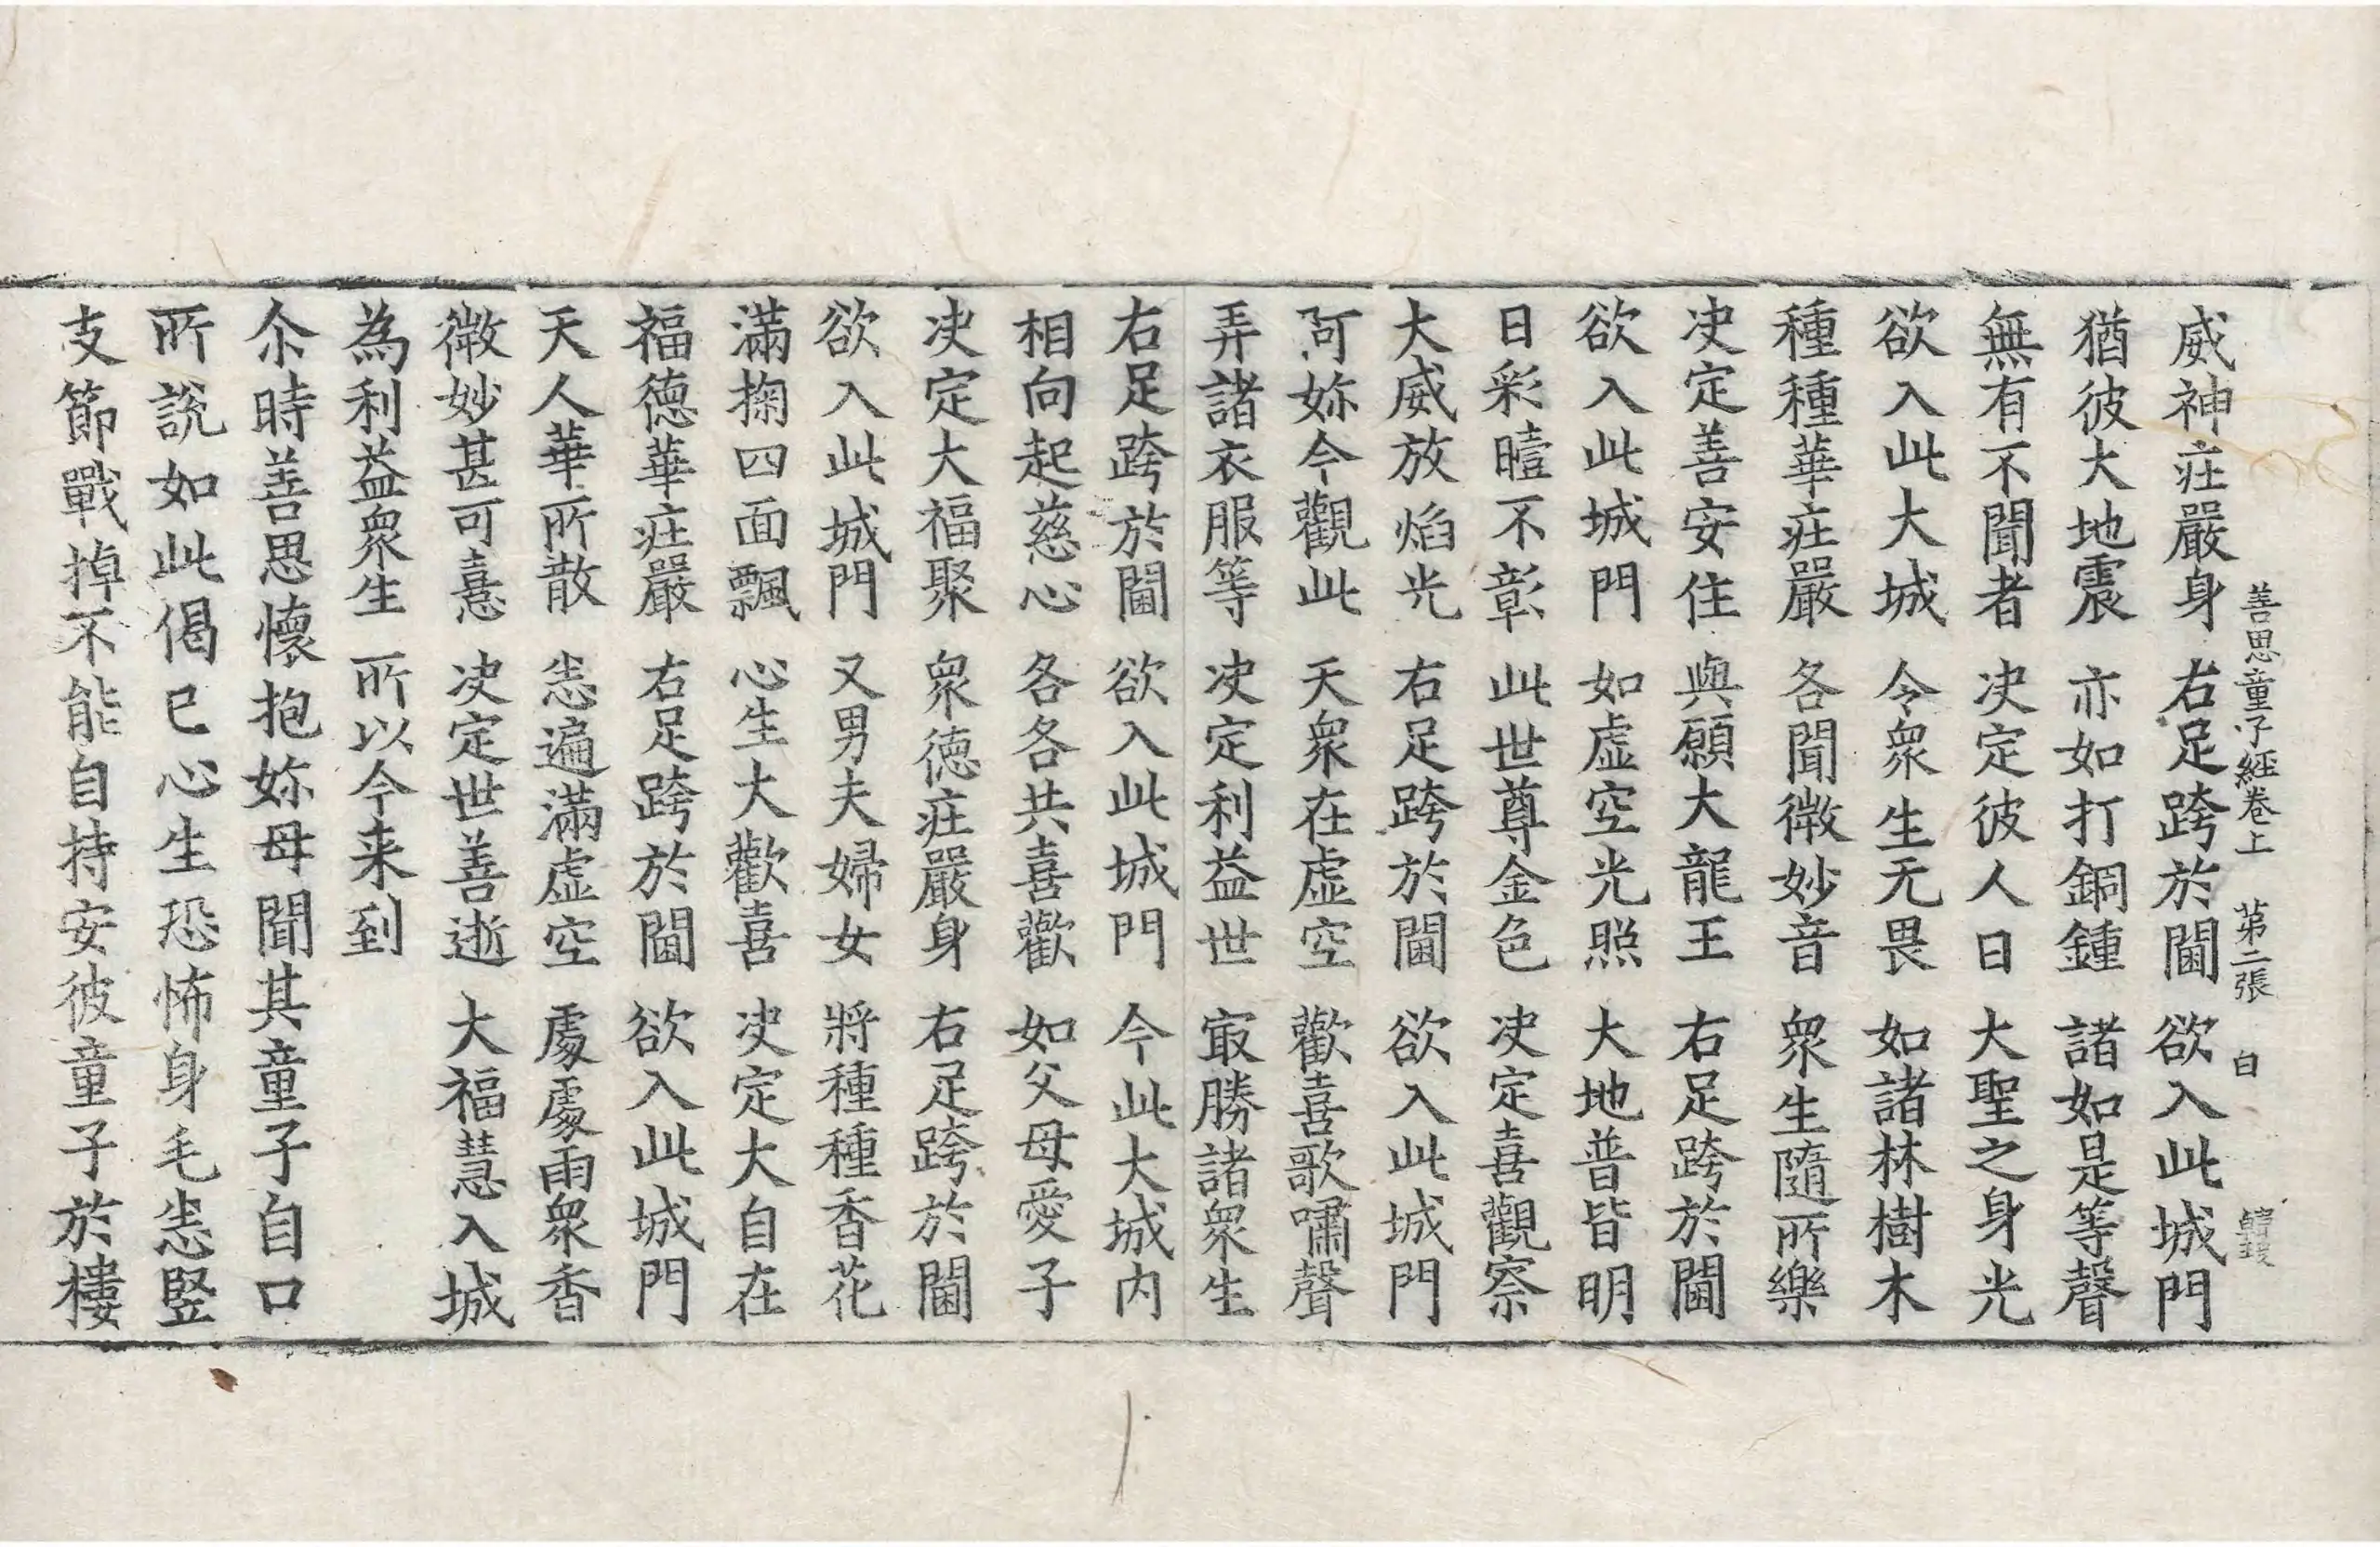 善思童子經卷上　第二張　白
威神庄嚴身　右足跨於閫　欲入此城門
猶彼大地震　亦如打銅鍾　諸如是等聲
無有不聞者　决定彼人日　大聖之身光
欲入此大城　令衆生无畏　如諸林樹木
種種華庄嚴　各聞微妙音　衆生隨所樂
决定善安住　與願大龍王　右足跨於閫
欲入此城門　如虛空光照　大地普皆明
日彩曀不彰　此世尊金色　决定喜觀察
大威放焰光　右足跨於閫　欲入此城門
阿妳今觀此　天衆在虛空　歡喜歌嘯聲
弄諸衣服等　决定利益世　㝡勝諸衆生
右足跨於閫　欲入此城門　今此大城內
相向起慈心　各各共喜歡　如父母愛子
决定大福聚　衆德庄嚴身　右足跨於閫
欲入此城門　又男夫婦女　將種種香花
滿掬四面飄　心生大歡喜　决定大自在
福德華庄嚴　右足跨於閫　欲入此城門
天人華所散　悉遍滿虛空　處處雨衆香
微妙甚可憙　决定世善逝　大福慧入城
為利益衆生　所以今来到
尒時善思懷抱妳母聞其童子自口
所說如此偈已心生恐怖身毛悉竪
支節戰掉不能自持安彼童子於樓